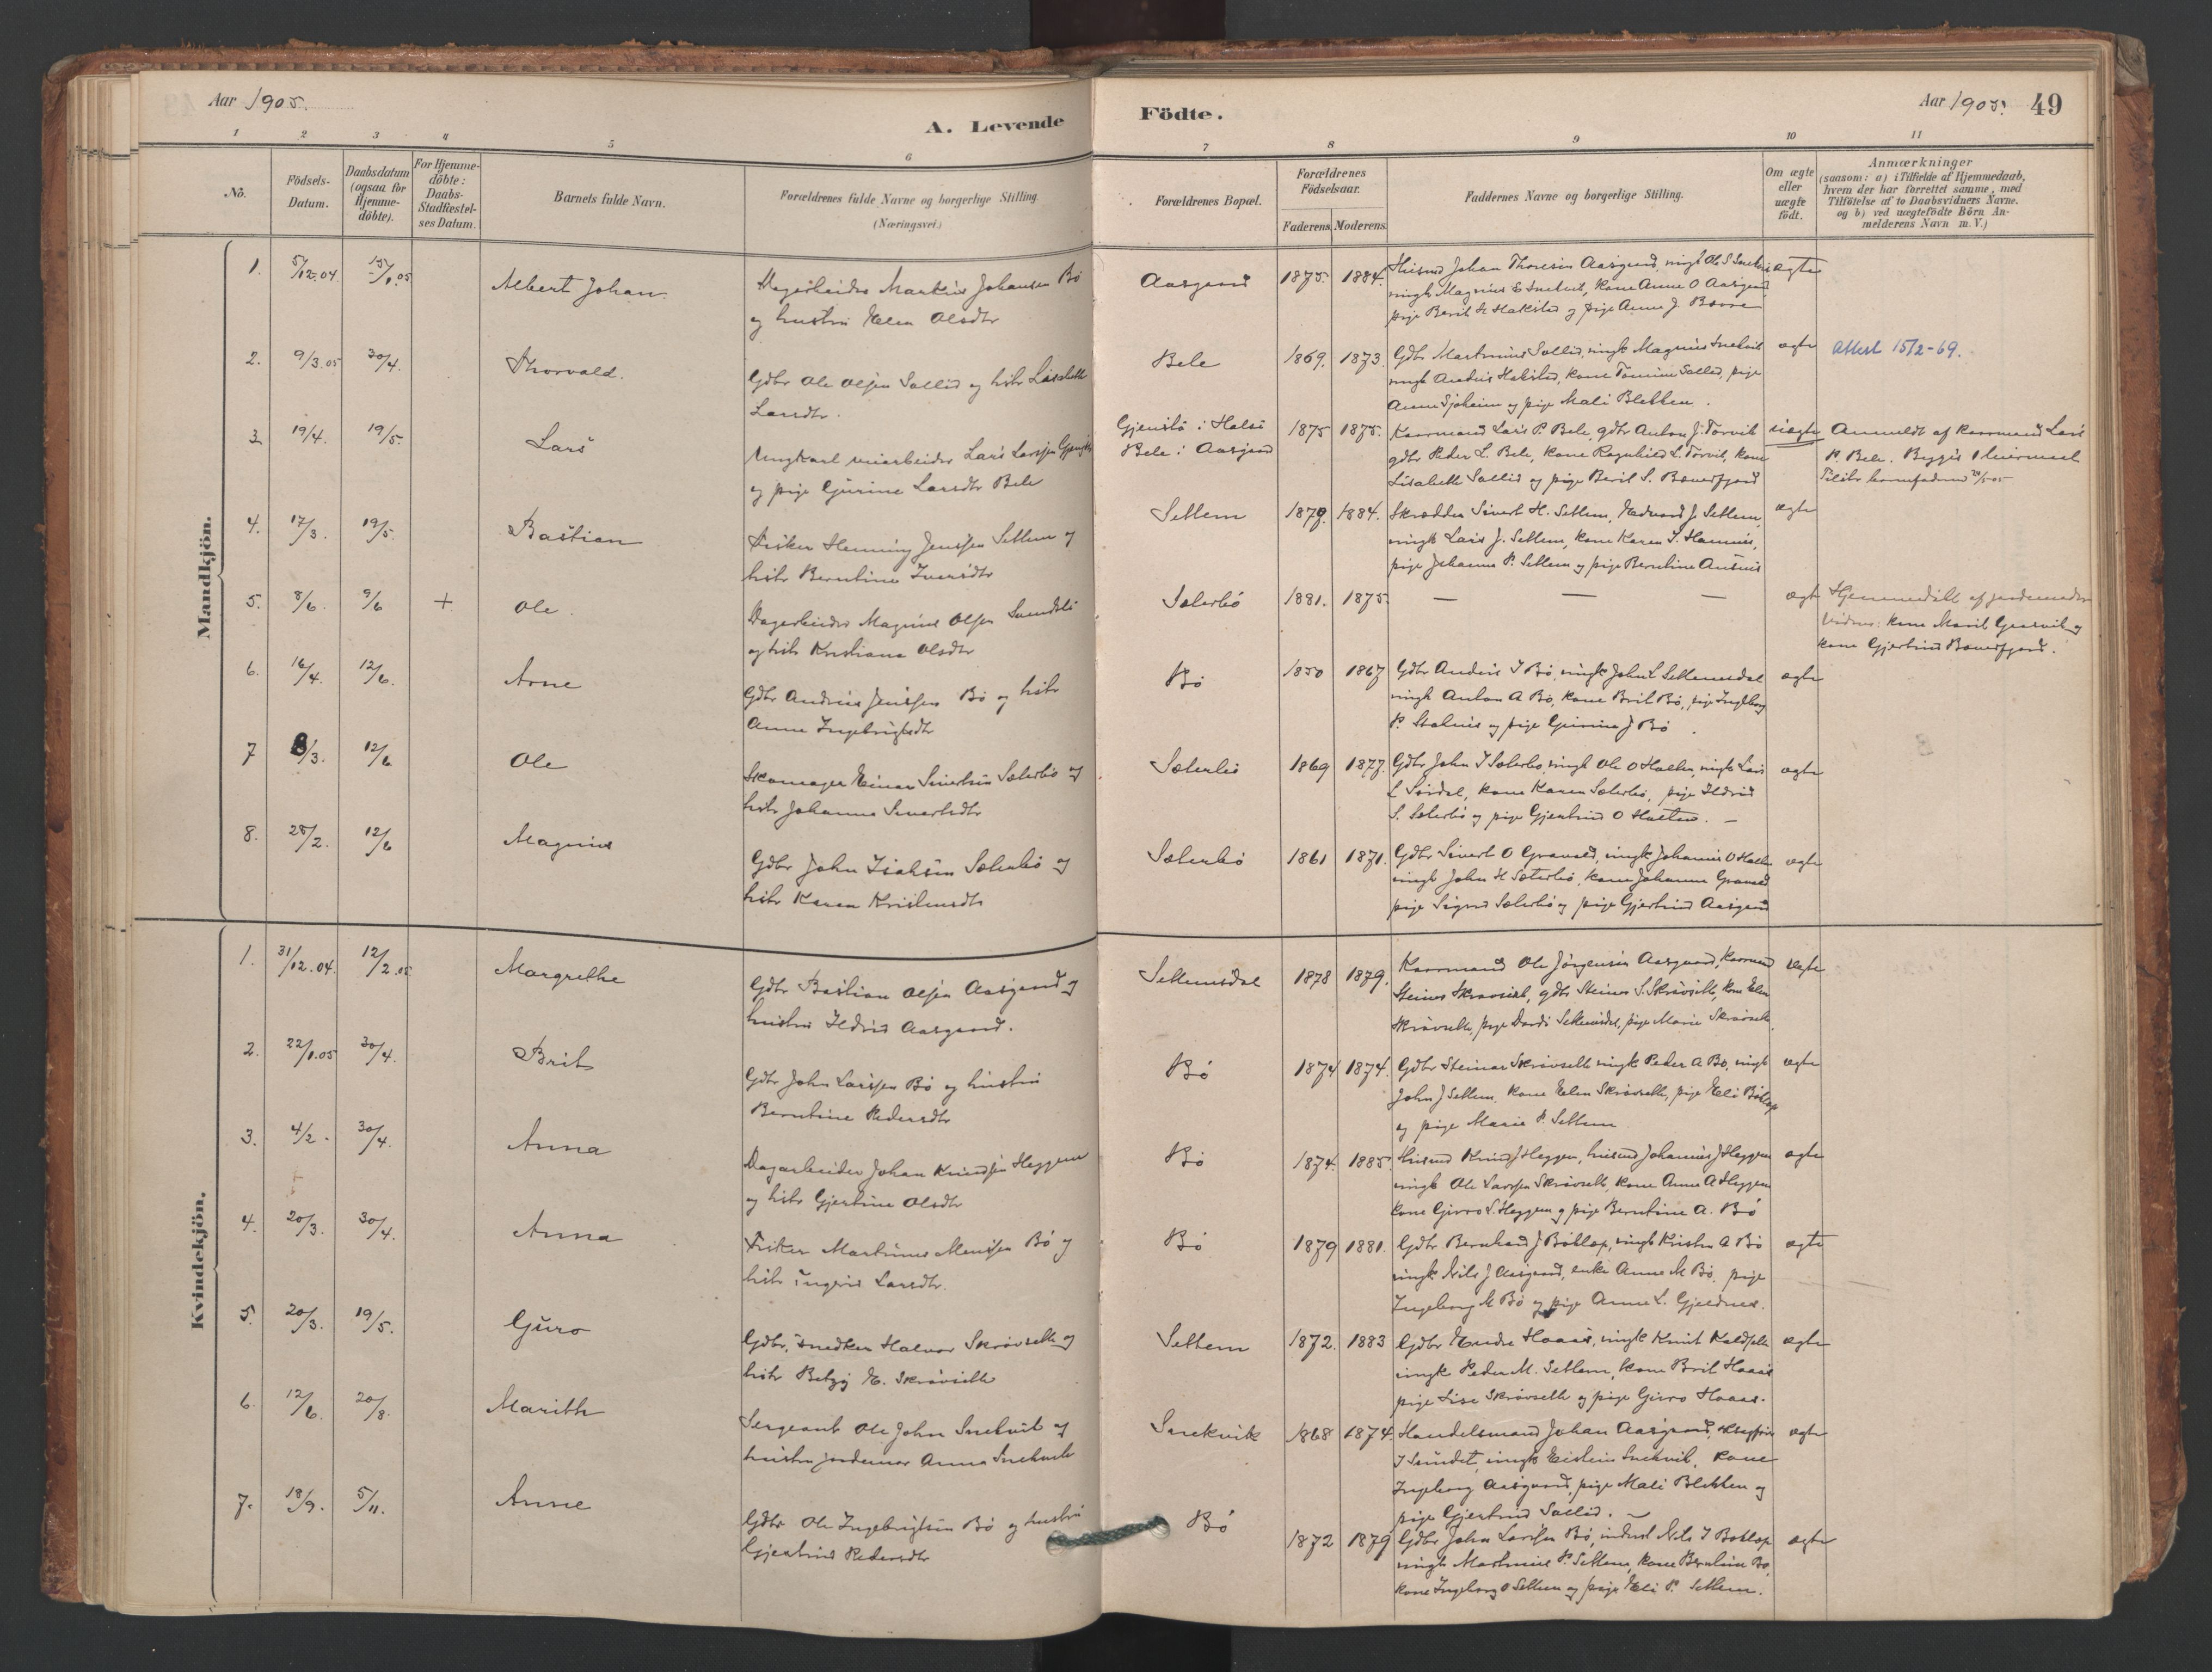 Aar 1905.
A. Levende Födte.
Aar 1905. 49
1 2 3 4 5 6 7 8 9 10 11
No.
Födsels-Datum.
Daabsdatum (ogsaa for Hjemme-döbte).
For Hjemme-döbte: Daabs-Stadfæstel-ses Datum.
Barnets fulde Navn.
Forældrenes fulde Navne og borgerlige Stilling.
(Næringsvei.)
Forældrenes Bopæl.
Forældrenes Födselsaar.
Faderens. Moderens.
Faddernes Navne og borgerlige Stilling.
Om ægte eller uægte födt.
Anmærkninger
(saasom: a) i Tilfælde af Hjemmedaab,
hvem der har forrettet samme, med
Tilföielse af to Daabsvidners Navne.
og b) ved uægtefödte Börn An-
melderens Navn m.V.)
Mandkjön.
1. 5/12-04 15/1.05 Albert Johan. Dagarbeider Markus Johansen Bö
og hustru Elen Olsdtr
Aasgaard 1875. 1884. Husmd Johan Thoresen Aasgaard, ungk Ole S Snekvik ægte
ungk Magnus E Snekvik, kone Anne O Aasgaard,
pige Berit H Hakstad og pige Anne J. Bævre
2. 9/3.05 30/4. Thorvald. Gdbr Ole Olsen Sollid og hstr Lisabeth
Larsdtr.
Bele 1869. 1873. Gdbr Martinus Sollid, ungk Magnus Snekvik ægte Attest 15/2-69.
ungk Anders Hakstad, kone Sollid, pige
Anne Sjøheim og pige Mali Blekken.
3. 19/4. 19/5. Lars Ungkarl veiarbeider Lars Larssen
og pige Gjurine Larsdtr Bele
i Halsa
Bele i Aasgaard
1875 1875. Kaarmand Lars P. Bele, gdbr Anton J. Torvik uægte Anmeldt af kaarmand Lars
gdbr Peder L. Bele, kone Ragnhild L. Torvik, kone P. Bele.
Lisabeth Sollid og pige Berit S. Bæverfjord
4. 17/3. 19/5. Bastian Fisker Henning Jenssen Settem og
hstr Berntine Iversdtr
Settem 1879. 1884. Skrædder Sivert H. Settem, Edvard J. Settem, ægte
ungk Lars J. Settem, kone Karen S. Hamnes,
pige Johanna P. Settem og pige Berntine
5. 8/6. 9/6 + Ole. Dagarbeider Magnus Olsen
og hstr Kristiane Olsdtr
Sæterbö 1881. 1875. — — — ægte Hjemmedöbt af jordemoder
vidner: kone Marit og
kone Gjertrud Bæverfjord.
6. 16/4. 12/6. Arne Gdbr Andreas Jenssen Bö og hstr
Anne Ingebrigtsdtr
Bö 1850 1867 Gdbr Anders I Bö, ungk John L Settemsdal ægte
ungk Anton A Bö, kone Brit Bö, pige Ingeborg
P. Stalnes og pige Gurine J Bö.
7 8/3. 12/6 Ole Skomager Einar Sivertsen Sæterbö og
hstr Johanna Sivertsdtr
Sæterbö 1869 1877. Gdbr John I Sæterbö, ungk Ole O Halten, ungk Lars ægte
L Surdal, kone Karen Sæterbö, pige Ildrid
S. Sæterbö og pige Gjertrud O Halten. —
8. 28/2. 12/6 Magnus Gdbr John Isaksen Sæterbö og
hstr Karen Kristensdtr
Sæterbö 1861 1871. Gdbr Sivert O Granvold, ungk Johannes O Halten ægte
ungk John H Sæterbö, kone Johanna
pige Signe Sæterbö og pige Gjertrud Aasgaard
Kvindekjön.
1. 31/12.04. 12/2.05 Margrethe Gdbr Bastian Olsen Aasgaard og
hustru Ildrid Aasgaard.
Settemsdal 1878 1879. Kaarmand Ole Jörgensen Aasgaard, Kaarmand ægte
Steinar Skrövseth, gdbr Steinar S. Skrövseth, kone Elen
Skrövseth, pige Dordi Settemsdal, pige Marie Skrövseth.
2. 22/1.05 30/4. Brit Gdbr John Larssen Bö og hustru
Berntine Pedersdtr
Bö 1874 1874. Gdbr Steinar Skrövseth ungk Peder A Bö, ungk ægte
John J Settem, kone Elen Skrövseth, pige Eli
og pige Marie P. Settem
3. 4/2. 30/4. Anna Dagarbeider Johan Knudsen Heggem
og hstr Gjertine Olsdtr
Bö 1874. 1885. Husmd Knud J Heggem, husmd Johannes J Heggem ægte
ungk Ole Larssen Skrövseth, kone Anne A Heggem
kone Guro L. Heggem og pige Berntine A. Bö
4. 20/3. 30/4. Anna Fisker Martinus Monssen Bö og
hstr Ingeri Larsdtr.
Bö 1879 1881. Gdbr Bernhard J ungk Kristen A Bö ægte
ungk Nils J Aasgaard, enke Anne M Bö, pige
Ingeborg M Bö og pige Anne L. Gjeldnes.
5. 20/3. 19/5. Guro Gdbr, snedker Halvor Skrövseth og
hstr Betzy E. Skrövseth
Settem 1872. 1883 Gdbr Endre Haaas, ungk Knut ægte
ungk Peder M. Settem, kone Brit Haaas
pige Lise Skrövseth og pige Guro Haaas.
6. 12/6. 20/8. Marith Sergeant Ole John Snekvik og
hustru jordemor Anna Snekvik
Snekvik 1868 1874. Handelsmand Johan Aasgaard, ægte
I Sundet, ungk Eistein Snekvik, kone
Ingeborg Aasgaard, pige Mali Blekken og
pige Gjertrud Sollid. —
7. 18/9. 5/11. Anne Gdbr Ole Ingebrigtsen Bö og hustru
Gjertrud Pedersdtr
Bö 1872 1879 Gdbr John Larssen Bö, Nils I ægte
ungk Martinus P. Settem, kone Berntine Bö,
kone Ingeborg O Settem og pige Eli P. Settem.